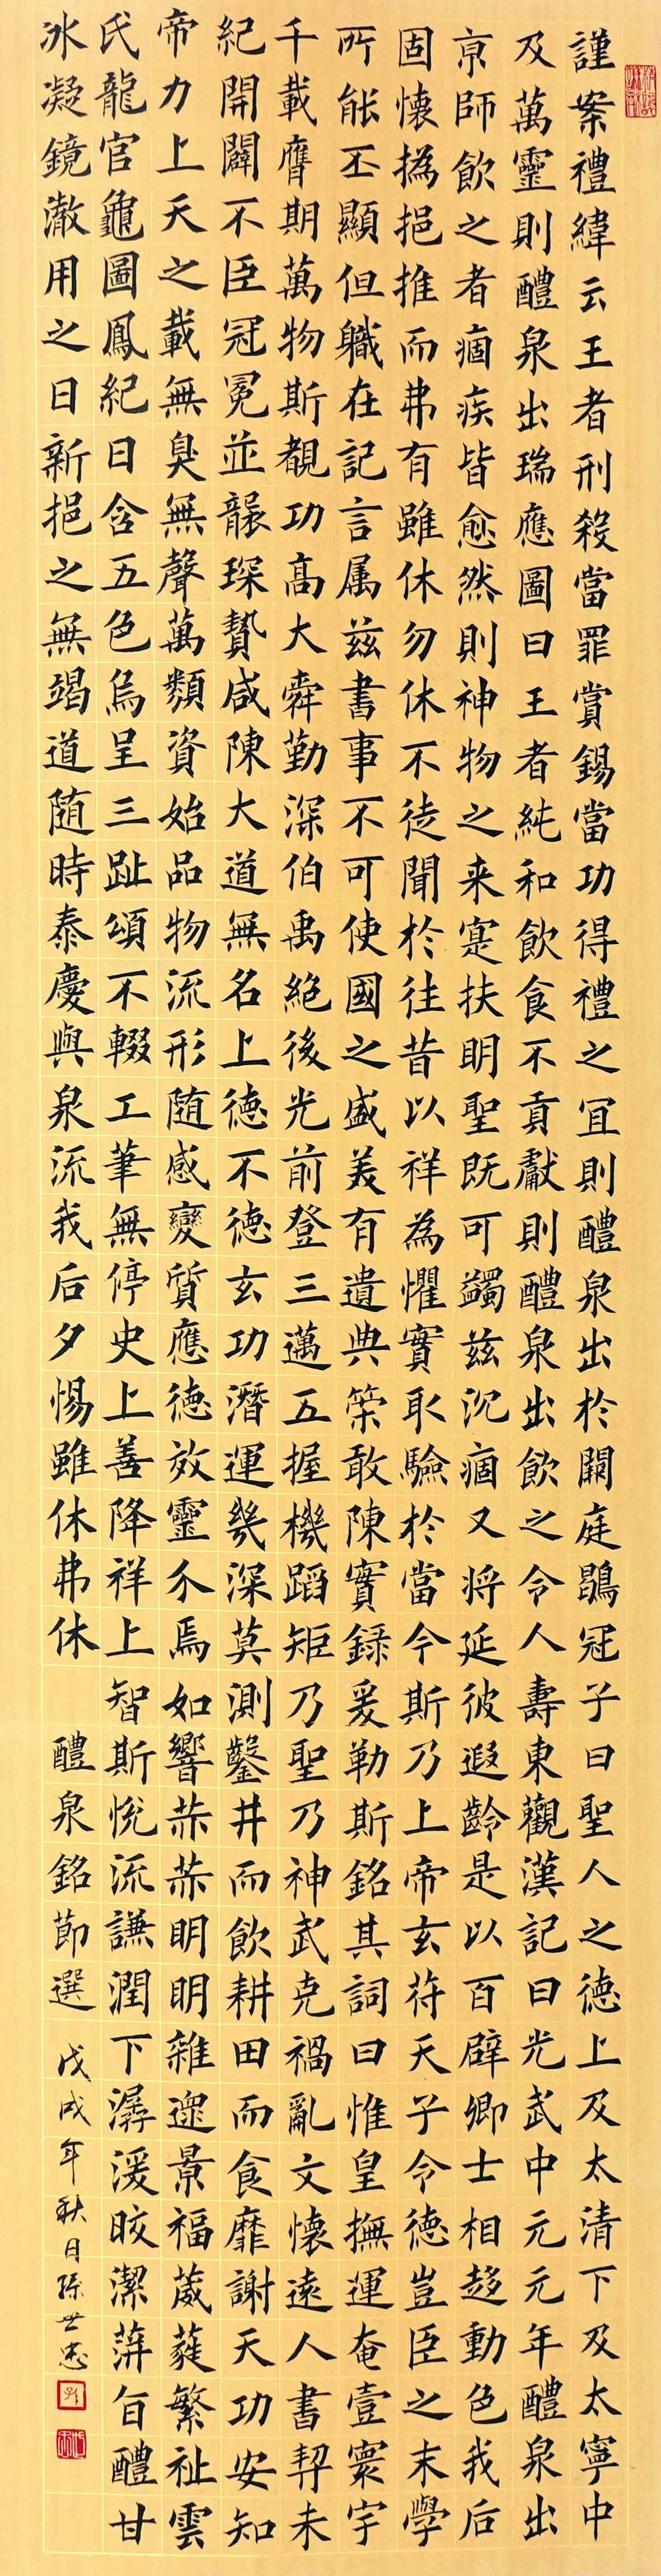 謹案禮緯云王者刑殺當罪賞錫當功得禮之宜則醴泉出於闕庭鶡冠子曰聖人之德上及太清下及太寧中
及萬靈則醴泉出瑞應圖曰王者純和飲食不貢獻則醴泉出飲之令人壽東觀漢記曰光武中元元年醴泉出
京師飲之者痼疾皆愈然則神物之来寔扶明聖既可蠲兹沉痼又将延彼遐齡是以百辟卿士相趍動色我后
固懷撝挹推而弗有雖休勿休不徒聞於往昔以祥為懼實取驗於當今斯乃上帝玄符天子令德豈臣之末學
所能丕顯但職在記言属兹書事不可使國之盛美有遺典策敢陳實録爰勒斯銘其詞曰惟皇撫運奄壹寰宇
千載膺期萬物斯覩功高大舜勤深伯禹絶後光前登三邁五握機蹈矩乃聖乃神武克禍亂文懷遠人書契未
紀開闢不臣冠冕並襲琛贄咸陳大道無名上德不德玄功潛運幾深莫測鑿井而飲耕田而食靡謝天功安知
帝力上天之載無臭無聲萬類資始品物流形随感變質應德效靈介焉如響赫赫明明雜遝景福葳蕤繁祉雲
氏龍官龜圖鳳紀日含五色烏呈三趾頌不輟工筆無停史上善降祥上智斯悦流謙潤下潺湲皎潔蓱旨醴甘
冰凝鏡澈用之日新挹之無竭道随時泰慶與泉流我后夕惕雖休弗休 醴泉銘節選 戊戌年秋日孫世忠